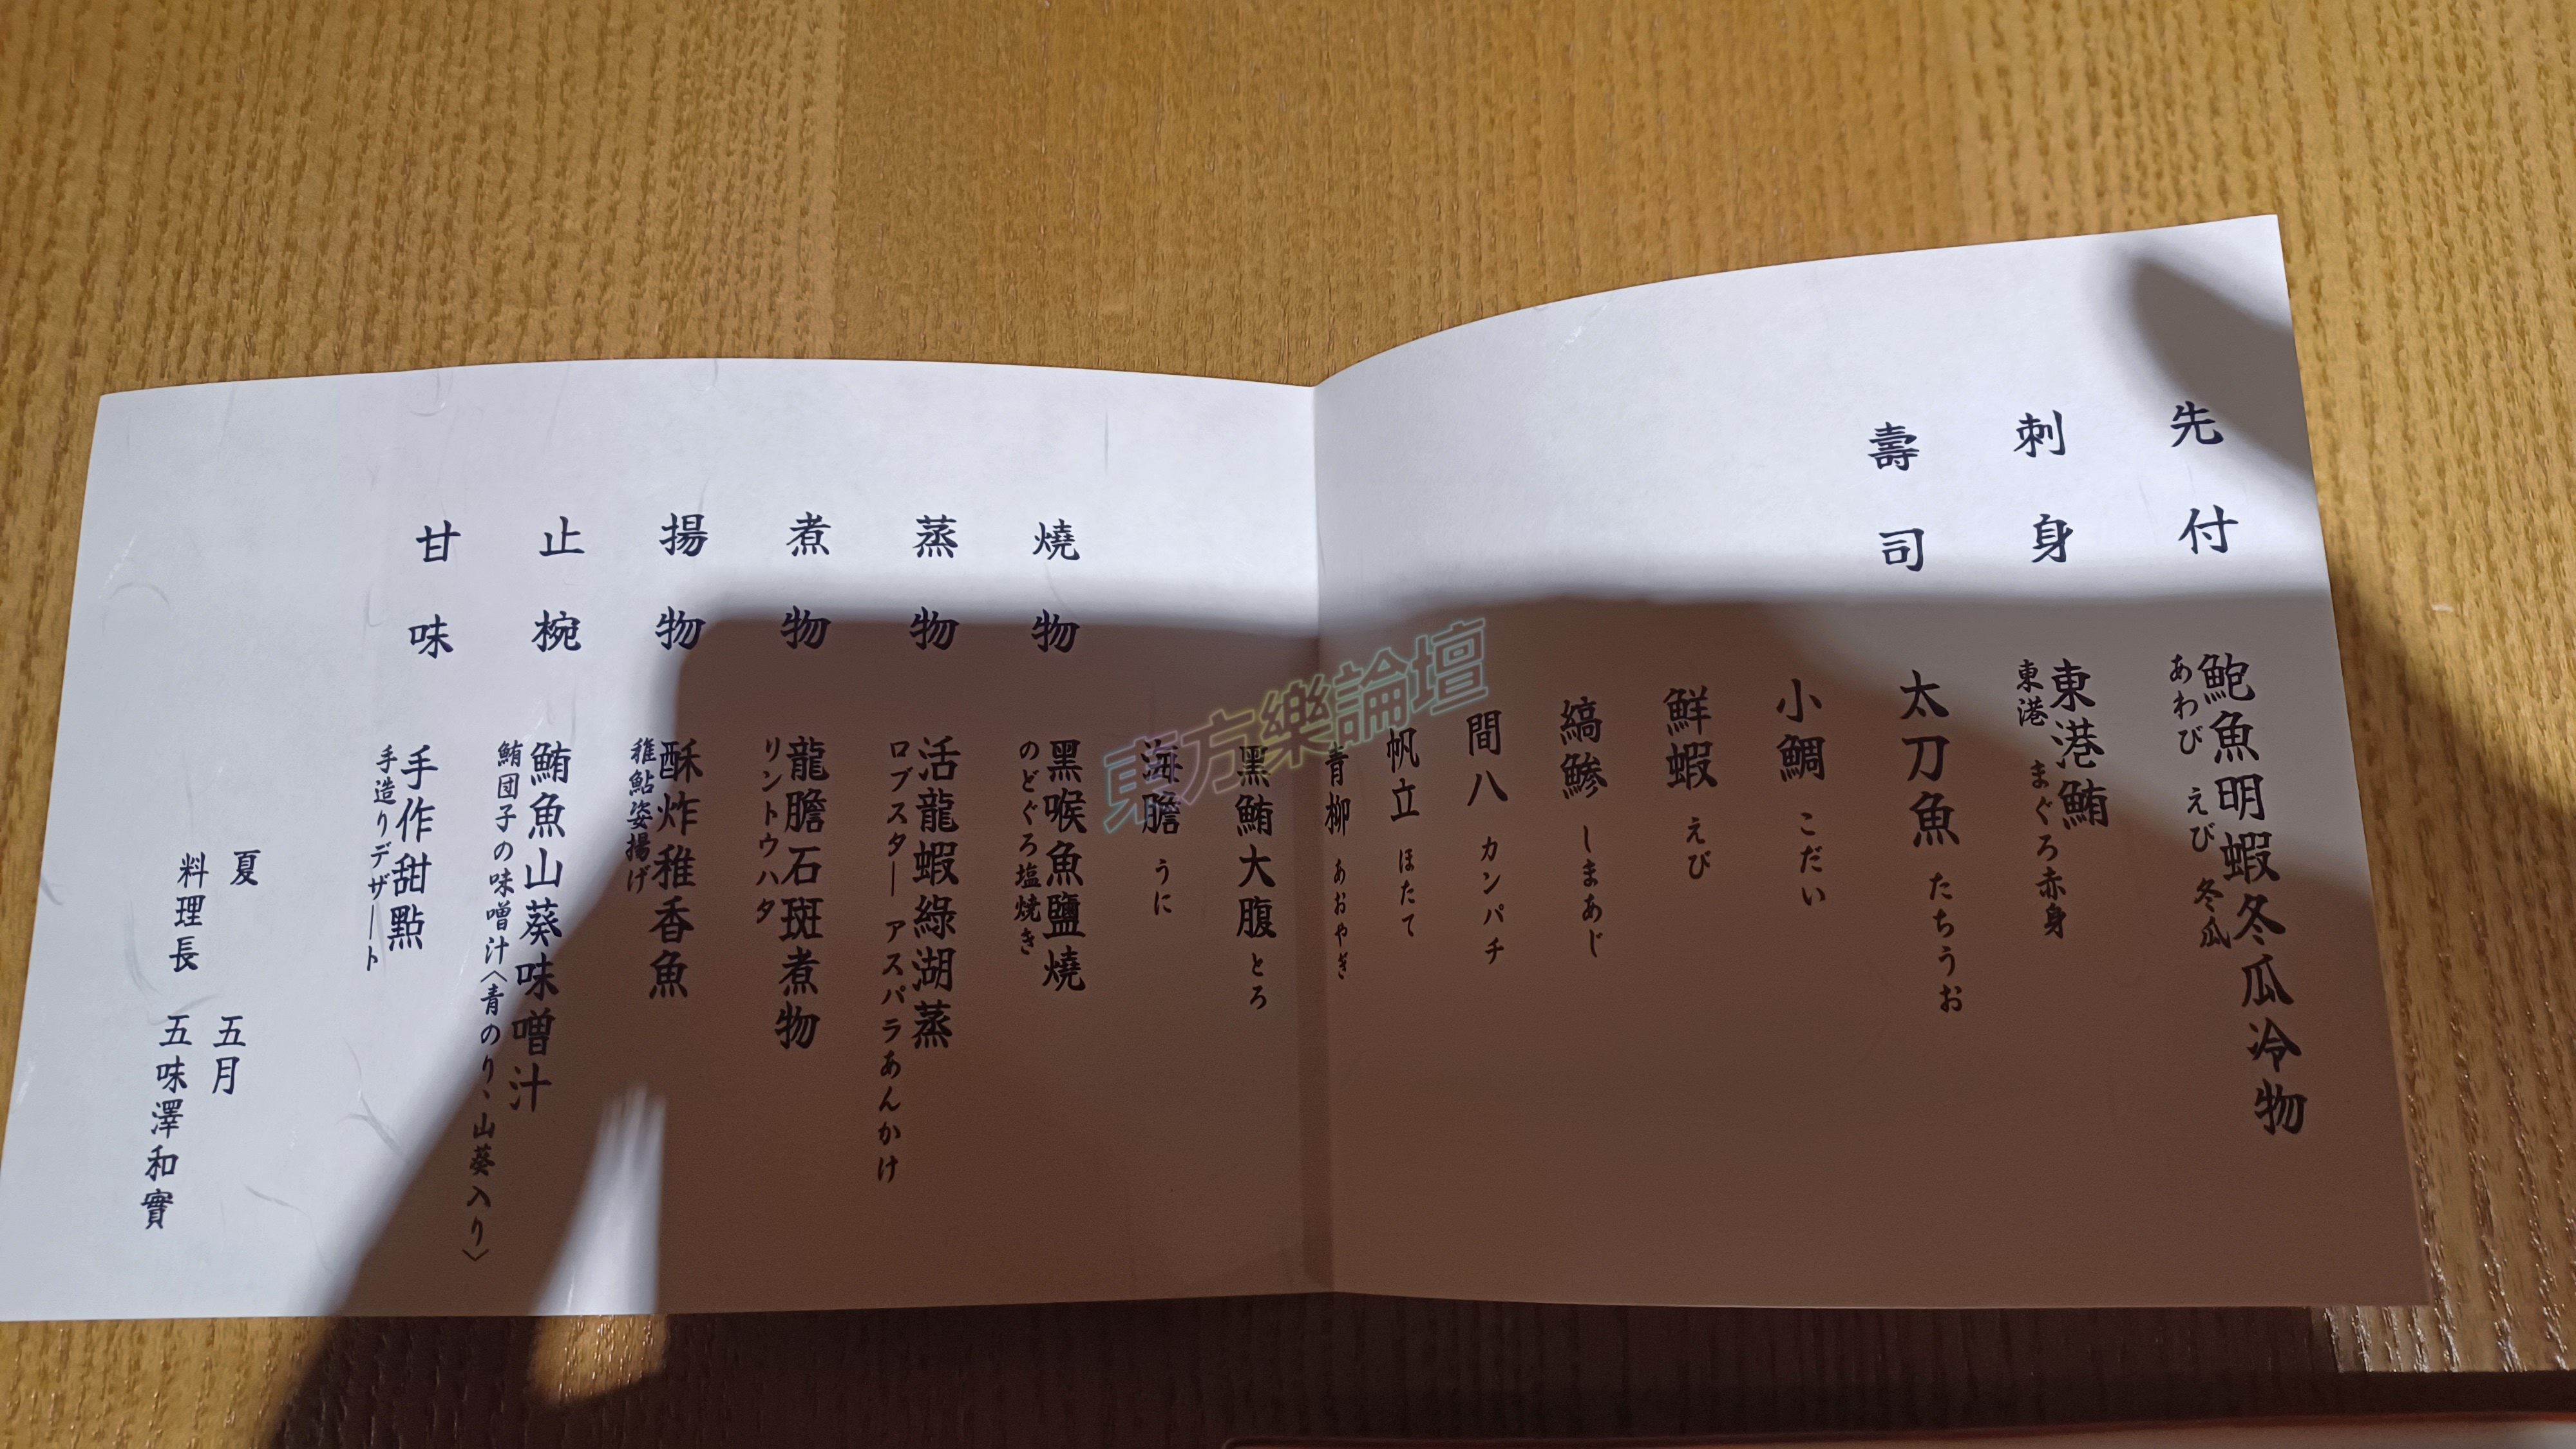 先付
鮑魚明蝦冬瓜冷物
あわび えび 冬瓜
刺身
東港鮪
東港 まぐろ赤身
壽司
太刀魚 たちうお
小鯛 こだい
鮮蝦 えび
縞鰺 しまあじ
間八 カンパチ
帆立 ほたて
青柳 あおやぎ
黑鮪大腹 とろ
海膽 うに
燒物
黑喉魚鹽燒
のどぐろ塩焼き
蒸物
活龍蝦綠湖蒸
ロブスター アスパラあんかけ
煮物
龍膽石斑煮物
リントウハタ
揚物
酥炸稚香魚
稚鮎姿揚げ
止椀
鮪魚山葵味噌汁
鮪団子の味噌汁〈青のり、山葵入り〉
甘味
手作甜點
手造りデザート
夏 五月
料理長 五味澤和實
東方樂論壇